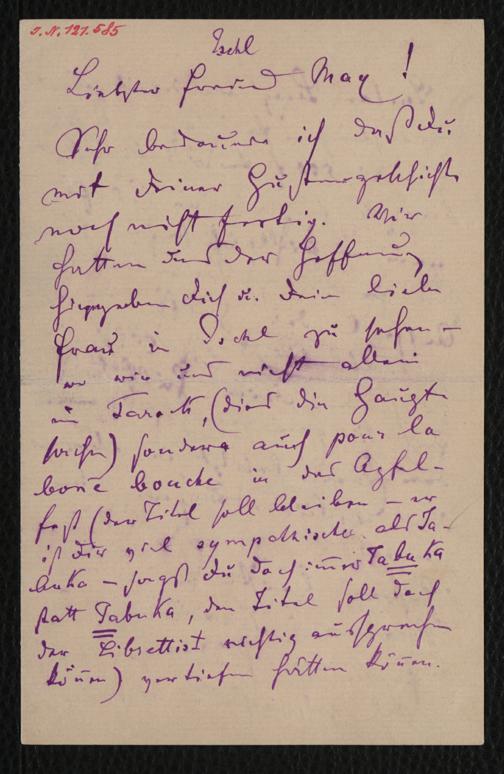 I.N. 121.585
Ischl
Liebster Freund Max!
Sehr bedauere ich daß Du
mit Deiner Hustengeschichte
noch nicht fertig. Wir
hatten uns der Hoffnung
hingegeben Dich u. Deine liebe
Frau in Ischl zu sehen –
wo wir uns nicht allein
in Tarock, (dies die Haupt-
sache) sondern auch pour la
bonne bouche in das Apfel-
fest (der Titel soll bleiben – er
ist Dir viel sympathischer als Ja-
buka – sagst Du doch immer Tabuka
statt Jabuka, den Titel soll doch
der Librettist richtig aussprechen
können) vertiefen hätten können.